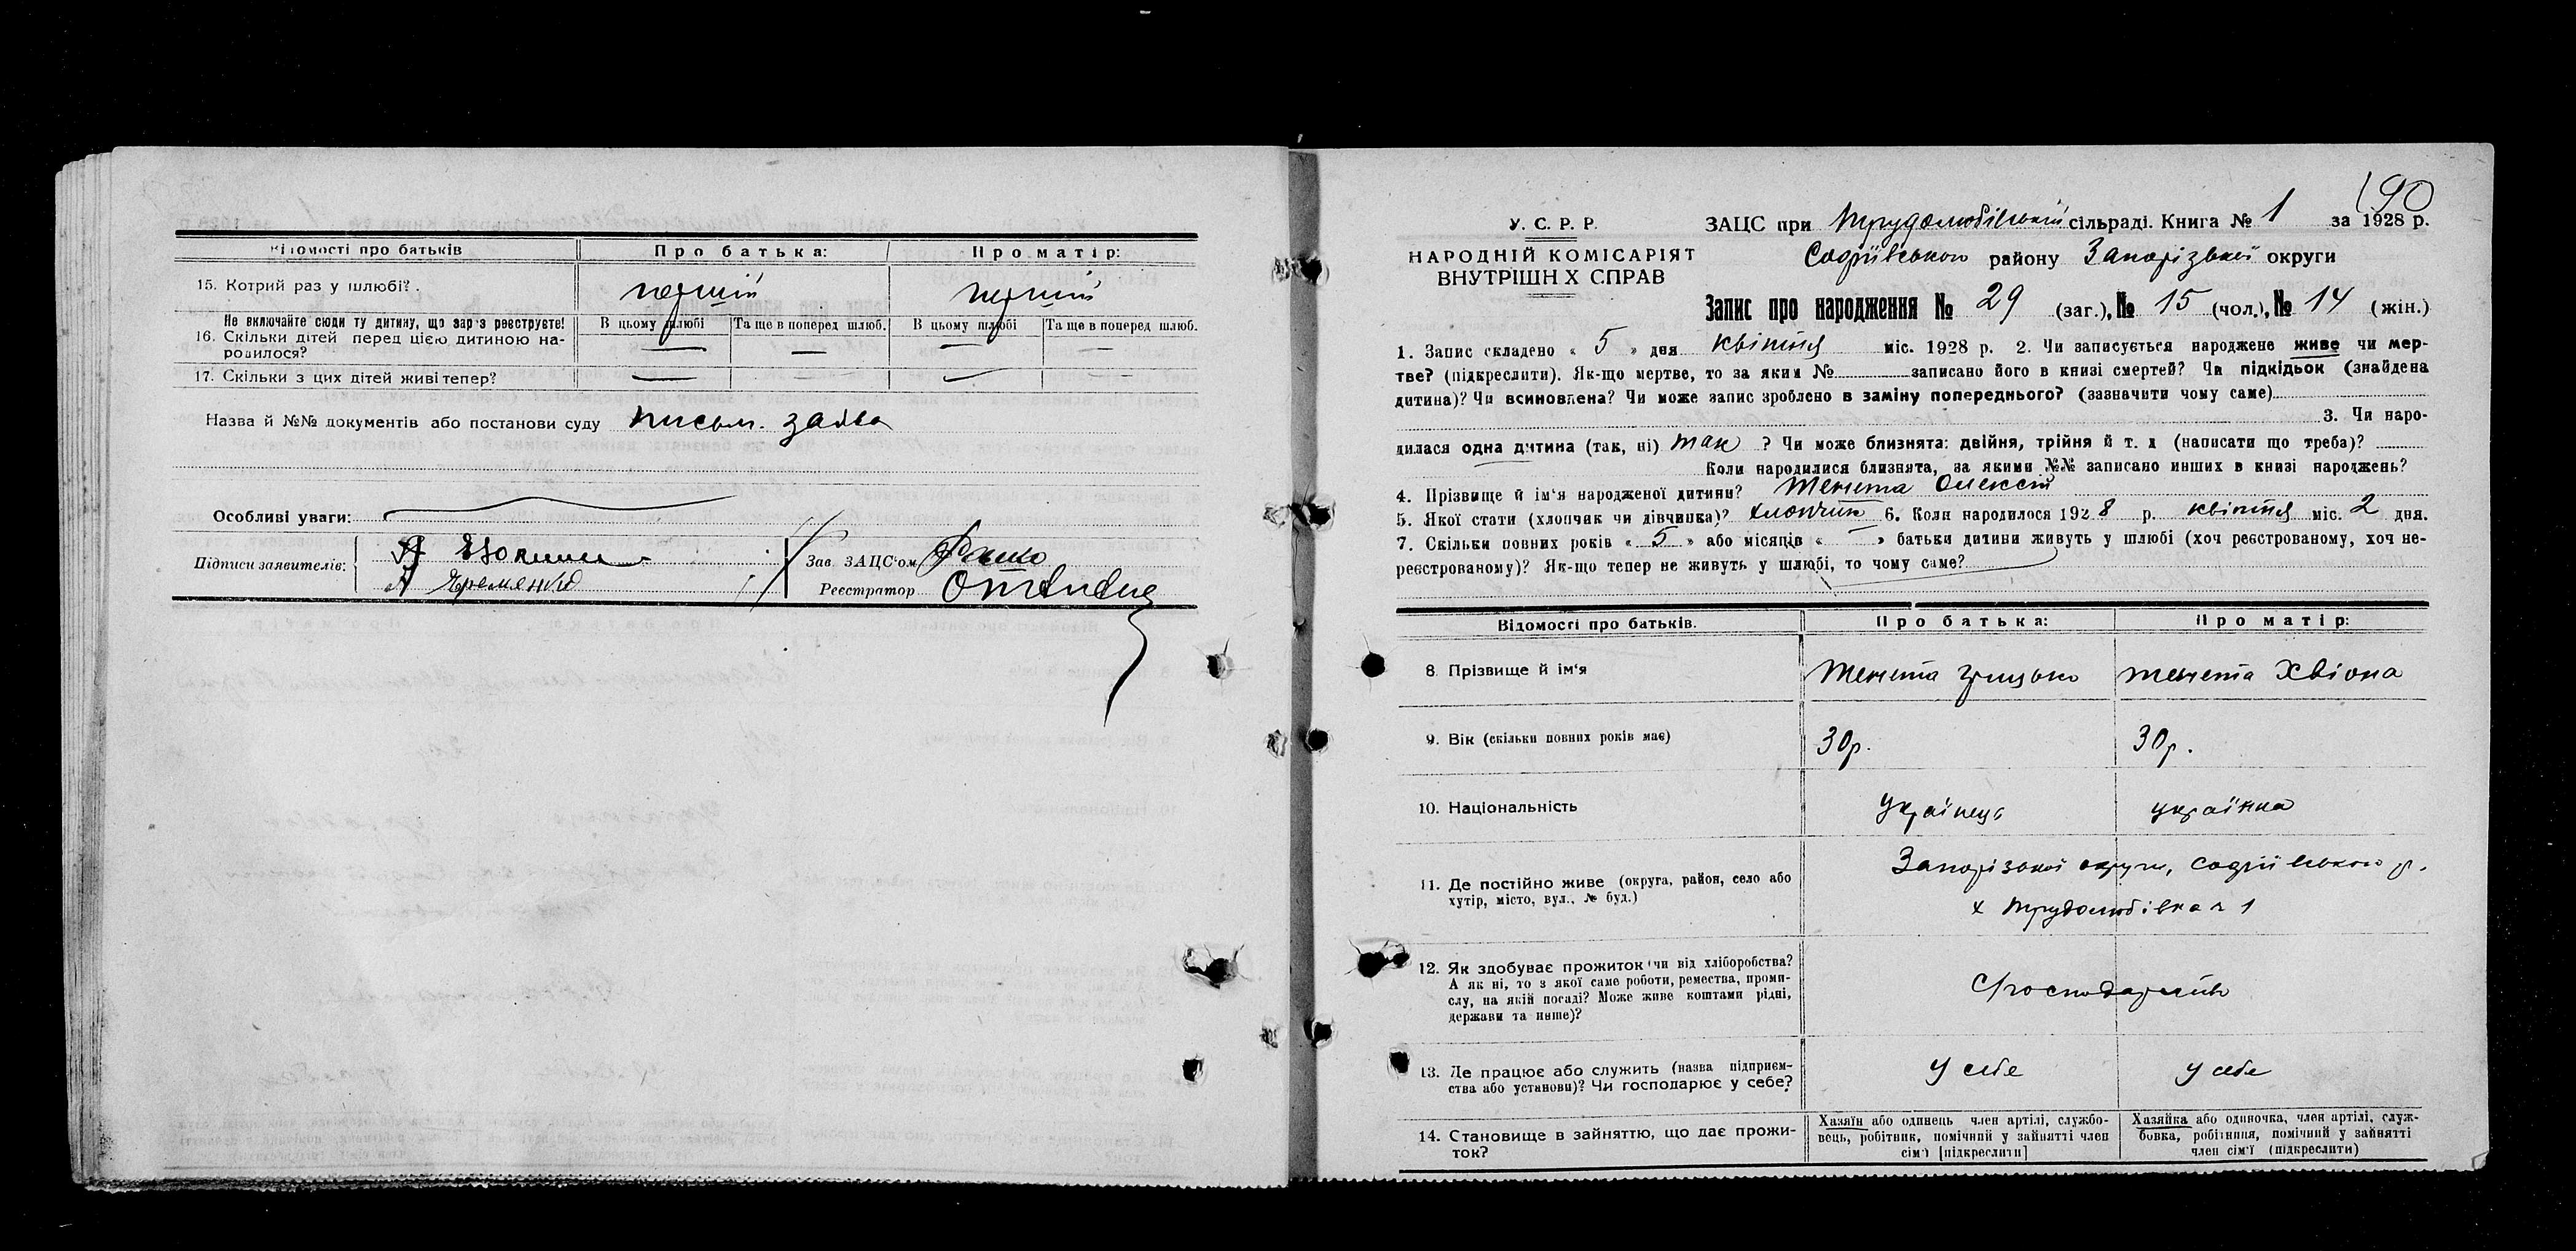 Відомості про батьків
Про батька:
Про матір:
15. Котрий раз у шлюбі?
перший
перший
Не включайте сюди ту дитину, що зараз реєструєте!
В цьому шлюбі
Та ще в поперед шлюб.
В цьому шлюбі
Та ще в поперед шлюб.
16. Скільки дітей перед цією дитиною на-
родилося?
— — — —
17. Скільки з цих дітей живі тепер?
— — — —
Назва й №№ документів або постанови суду письм. заява
Особливі уваги:
Підписи заявителів:
Зав. ЗАЦС'ом
А Яременко
Реєстратор
190
У. С. Р. Р.
НАРОДНІЙ КОМІСАРІЯТ
ВНУТРІШН Х СПРАВ
ЗАЦС при Трудолюбівській сільраді. Книга № 1 за 1928 р.
Софіївського району Запорізької округи
Запис про народження № 29 (заг.), № 15 (чол.), № 14 (жін.)
1. Запис складено « 5 » дня квітня міс. 1928 р. 2. Чи записується народжене живе чи мер-
тве? (підкреслити). Як-що мертве, то за яким № записано його в книзі смертей? Чи підкідьок (знайдена
дитина)? Чи всиновлена? Чи може запис зроблено в заміну попереднього? (зазначити чому саме)
3. Чи наро-
дилася одна дитина (так, ні) так ? Чи може близнята: двійня, трійня й т. д (написати що треба)?
Коли народилися близнята, за якими №№ записано инших в книзі народжень?
4. Прізвище й ім'я народженої дитини? Тенета Олексій
5. Якої стати (хлопчик чи дівчинка)? хлопчик 6. Коли народилося 1928 р. квітня міс. 2 дня.
7. Скільки повних років « 5 » або місяців « — » батьки дитини живуть у шлюбі (хоч реєстрованому, хоч не-
реєстрованому)? Як-що тепер не живуть у шлюбі, то чому саме?
Відомості про батьків.
Про батька:
Про матір:
8. Прізвище й ім'я
Тенета Грицько
Тенета Хвіона
9. Вік (скільки повних років має)
30р.
30р.
10. Національність
Українець
українка
11. Де постійно живе (округа, район, село або
хутір, місто, вул., № буд.)
Запорізької округи, Софіївського р.
х Трудолюбівка 1
12. Як здобуває прожиток чи від хліборобства?
А як ні, то з якої саме роботи, ремества, проми-
слу, на якій посаді? Може живе коштами рідні,
держави та инше)?
С/господарство
13. Де працює або служить (назва підприєм-
ства або установи)? Чи господарює у себе?
У себе
У себе
14. Становище в зайняттю, що дає прожи-
ток?
Хазяїн або одинець член артілі, службо-
вець, робітник, помічний у зайнятті член
сім'ї [підкреслити]
Хазяйка або одиночка, член артілі, служ-
бовка, робітниця, помічний у зайнятті
член сім'ї (підкреслити)